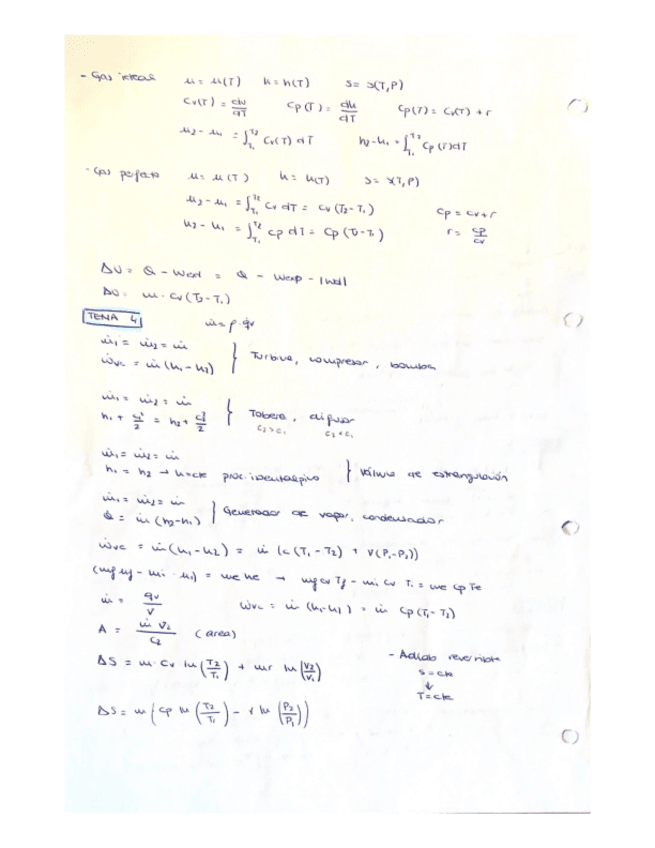 - Gas ideal u = u(T) h = h(T) s = s(T,P)
Cv(T) = du/dT Cp(T) = dh/dT Cp(T) = Cv(T) + r
u2 - u1 = ∫T1T2 Cv(T) dT h2 - h1 = ∫T1T2 Cp(T)dT
- Gas perfecto u = u(T) h = h(T) s = s(T,P)
u2 - u1 = ∫T1T2 Cv dT = Cv(T2 - T1) Cp = Cv + r
h2 - h1 = ∫T1T2 Cp dT = Cp(T2 - T1) r = Cp/Cv
ΔU = Q - Wad = Q - Wexp - |Wd|
ΔU = m · Cv(T2 - T1)
TEMA 4 ṁ = ρ · qv
ṁ1 = ṁ2 = ṁ
Ẇvc = ṁ(h1 - h2) } Turbina, compresor, bomba
ṁ1 = ṁ2 = ṁ
h1 + c1²/2 = h2 + c2²/2 } Tobera, difusor
c2 > c1 c2 < c1
ṁ1 = ṁ2 = ṁ
h1 = h2 → h = cte proc. isentalpico } Válvula de estrangulación
ṁ1 = ṁ2 = ṁ
Q = ṁ(h2 - h1) } Generador de vapor, condensador
Ẇvc = ṁ(h1 - h2) = ṁ (c(T1 - T2) + V(P1 - P2))
(mf uf - mi · ui) = me he → mf cv Tf - mi cv Ti = me cp Te
ṁ = qv/V Ẇvc = ṁ (h1 - h2) = ṁ Cp(T1 - T2)
A = ṁ V2/C2 (area)
ΔS = m · Cv ln(T2/T1) + mr ln(V2/V1)
- Adiab reversible
s = cte
↓
T = cte
ΔS = m (Cp ln (T2/T1) - r ln (P2/P1))